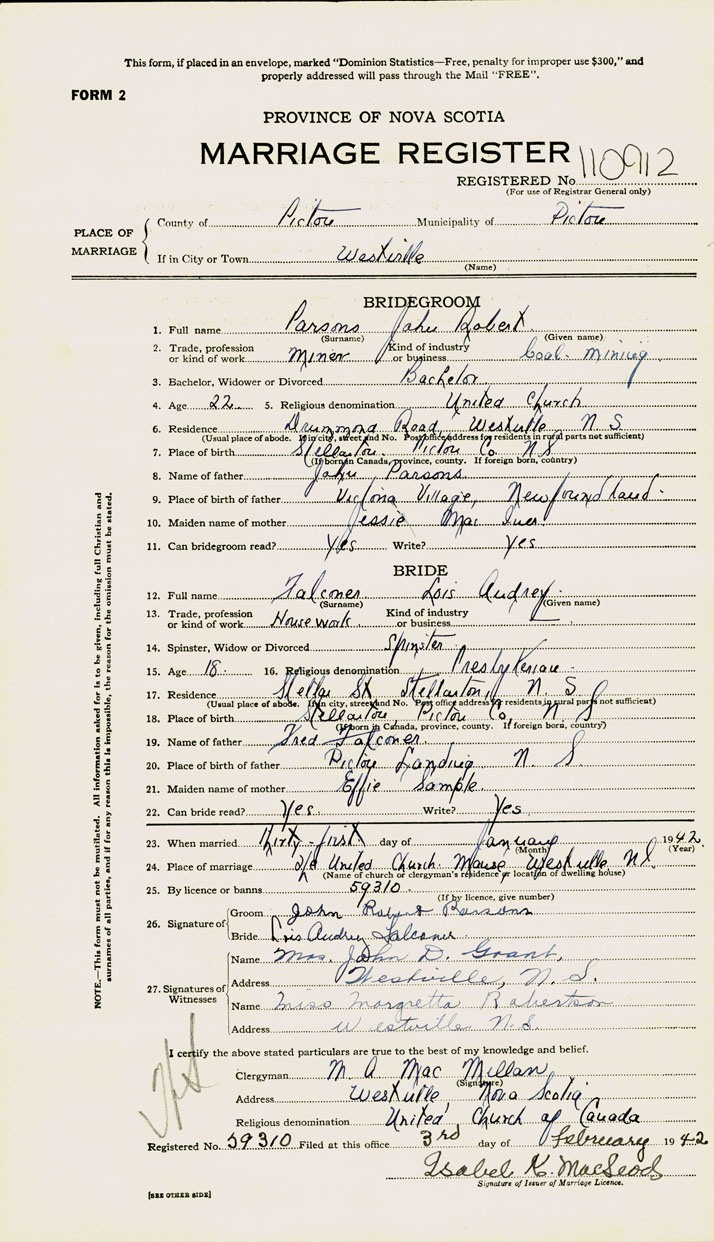 This form, if placed in an envelope, marked "Dominion Statistics—Free, penalty for improper use $300," and
properly addressed will pass through the Mail "FREE".
FORM 2
PROVINCE OF NOVA SCOTIA
MARRIAGE REGISTER 110912
REGISTERED No.
(For use of Registrar General only)
PLACE OF MARRIAGE
County of Pictou Municipality of Pictou
If in City or Town Westville
(Name)
BRIDEGROOM
1. Full name Parsons John Robert
(Surname) (Given name)
2. Trade, profession or kind of work Miner Kind of industry or business Coal Mining
3. Bachelor, Widower or Divorced Bachelor
4. Age 22 5. Religious denomination United Church
6. Residence Drummond Road, Westville N S
(Usual place of abode. If in city, street and No. Post office address for residents in rural parts not sufficient)
7. Place of birth Stellarton Pictou Co N S
(If born in Canada, province, county. If foreign born, country)
8. Name of father John Parsons
9. Place of birth of father Victoria Village, Newfoundland
10. Maiden name of mother Jessie Mac Iver
11. Can bridegroom read? Yes Write? Yes
BRIDE
12. Full name Falconer Lois Audrey
(Surname) (Given name)
13. Trade, profession or kind of work Housework Kind of industry or business —
14. Spinster, Widow or Divorced Spinster
15. Age 18 16. Religious denomination Presbyterian
17. Residence Stellar St Stellarton, N. S
(Usual place of abode. If in city, street and No. Post office address for residents in rural parts not sufficient)
18. Place of birth Stellarton, Pictou Co, N S
(If born in Canada, province, county. If foreign born, country)
19. Name of father Fred Falconer
20. Place of birth of father Pictou Landing N. S.
21. Maiden name of mother Effie Sample
22. Can bride read? Yes Write? Yes
23. When married thirty-first day of January 1942
(Month) (Year)
24. Place of marriage United Church Manse Westville N.S.
(Name of church or clergyman's residence or location of dwelling house)
25. By licence or banns 59310
(If by licence, give number)
26. Signature of
Groom John Robert Parsons
Bride Lois Audrey Falconer
27. Signatures of Witnesses
Name Mrs. John D. Grant,
Address Westville, N. S.
Name Miss Margretta Robertson
Address Westville N.S.
I certify the above stated particulars are true to the best of my knowledge and belief.
Clergyman M A Mac Millan
(Signature)
Address Westville, Nova Scotia
Religious denomination United Church of Canada
Registered No. 59310 Filed at this office 3rd day of February 1942
Isabel K. MacLeod
Signature of Issuer of Marriage Licence.
[SEE OTHER SIDE]
NOTE.—This form must not be mutilated. All information asked for is to be given, including full Christian and
surnames of all parties, and if for any reason this is impossible, the reason for the omission must be stated.